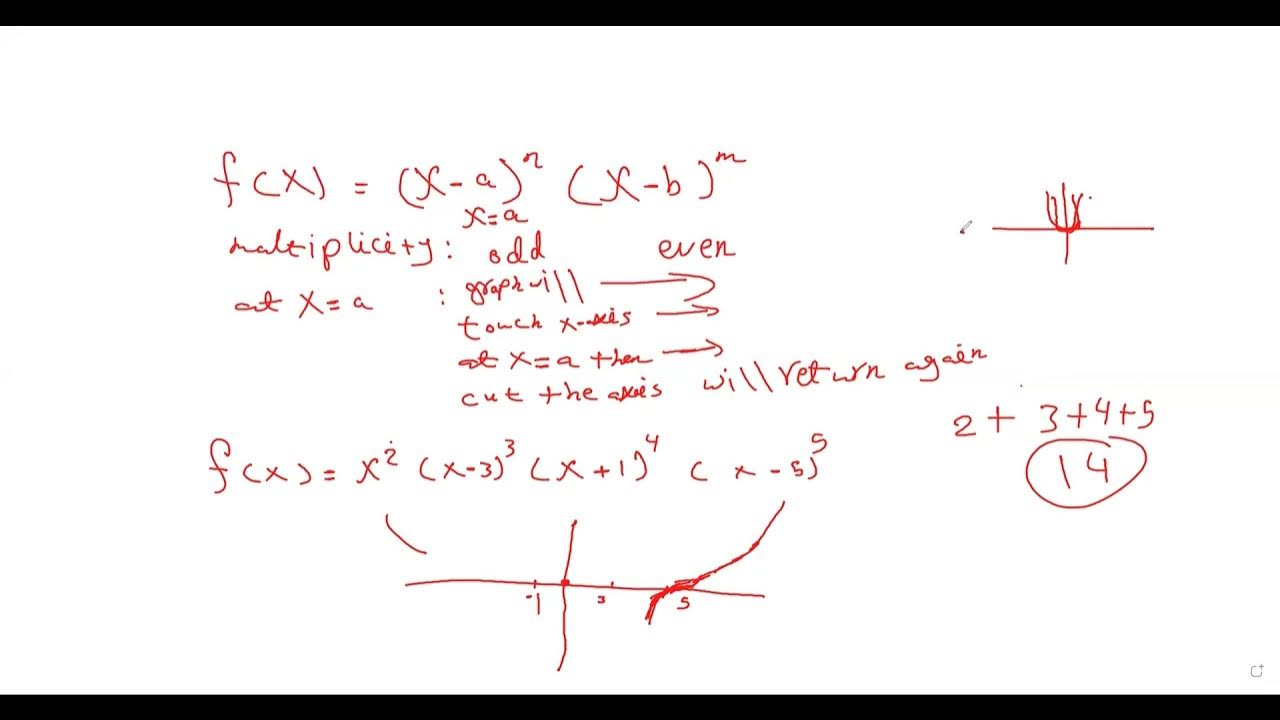 f(x) = (x-a)^n (x-b)^m
x=a
multiplicity: odd even
at x=a : graph will
touch x-axis
at x=a then
cut the axis will return again
2 + 3+4+5
14
f(x) = x^2 (x-3)^3 (x+1)^4 (x-5)^5
-1 3 5